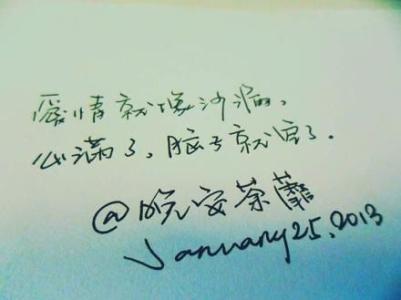 愛情就像沙漏,
心满了,脑子就空了.
@晚安荼蘼
January 25.2013